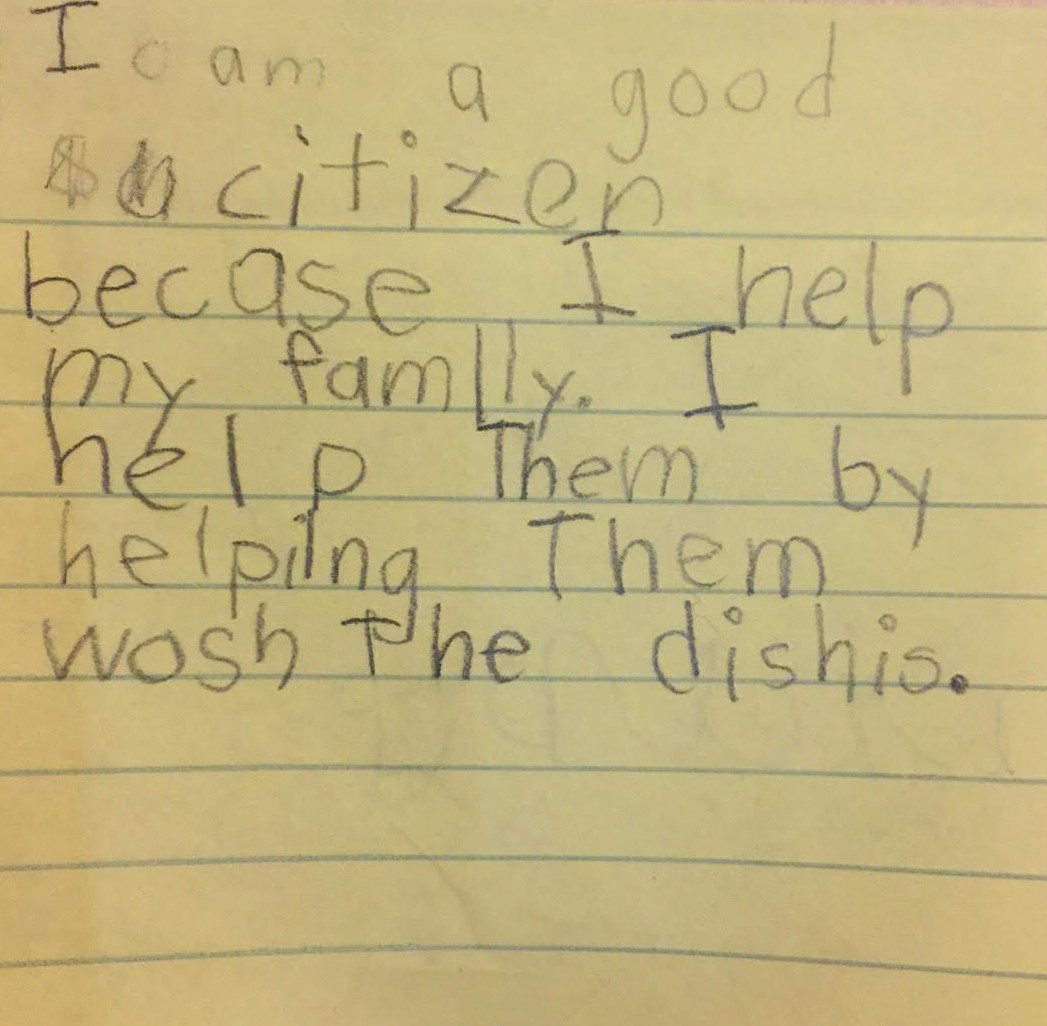 I am a good
citizen
becase I help
my famlly. I
help Them by
helping Them
wosh The dishis.